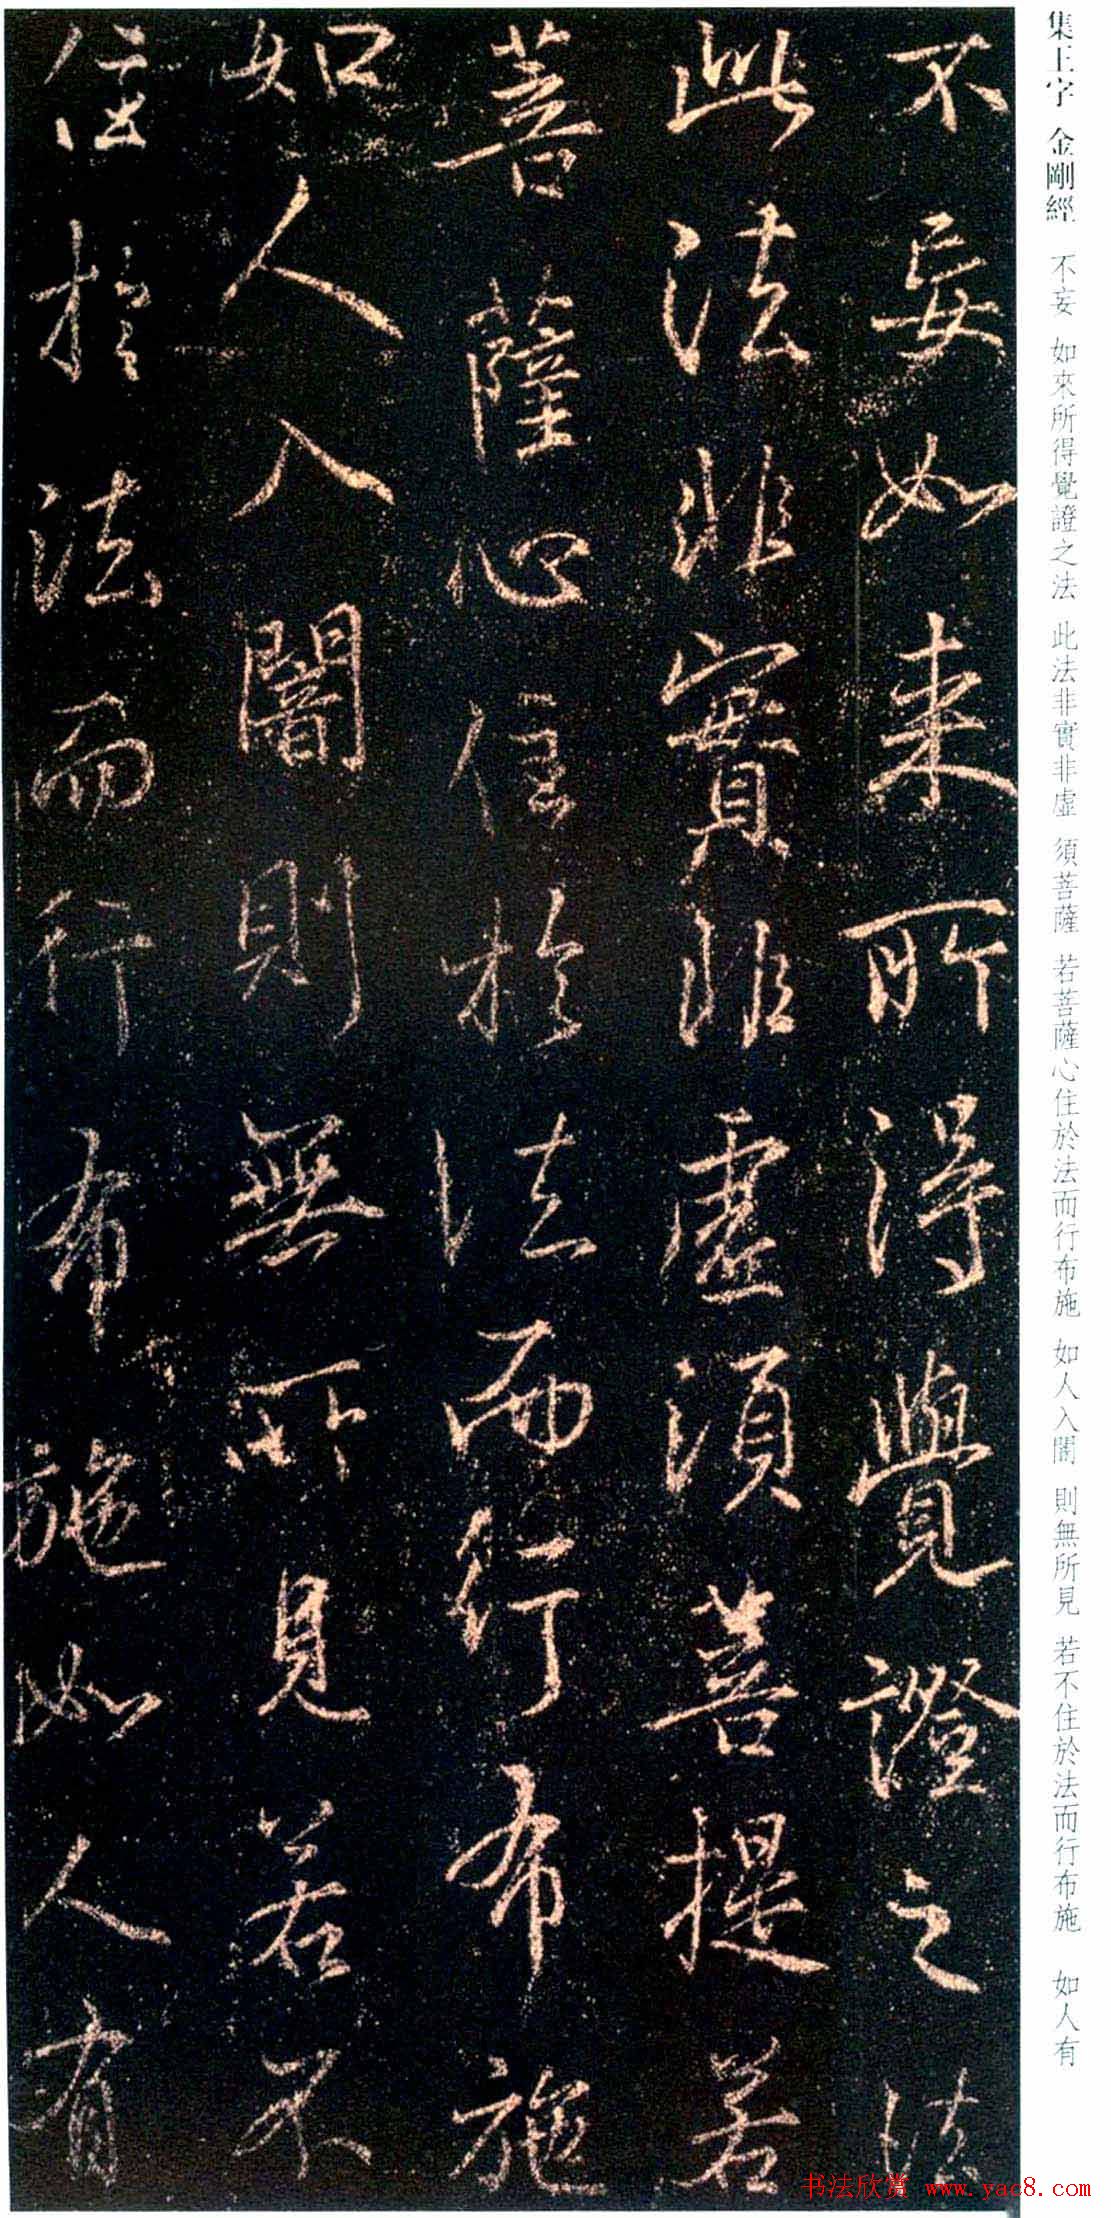 集王字 金剛經 不妄 如來所得覺證之法 此法非實非虛 須菩薩 若菩薩心住於法而行布施 如人入闇 則無所見 若不住於法而行布施 如人有
不妄如来所得覺證之法
此法非實非虛須菩提若
菩薩心住於法而行布施
如人入闇則無所見若不
住於法而行布施如人有
书法欣赏 www.yac8.com